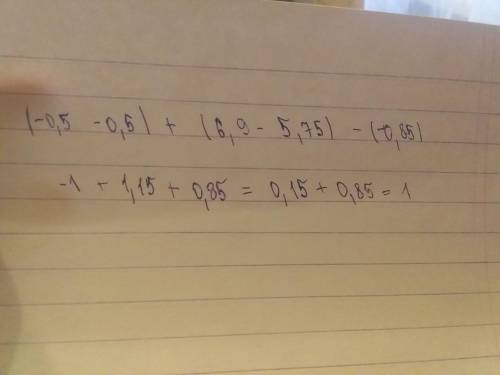 (-0,5 -0,5) + (6,9 - 5,75) - (-0,85)
-1 + 1,15 + 0,85 = 0,15 + 0,85 = 1